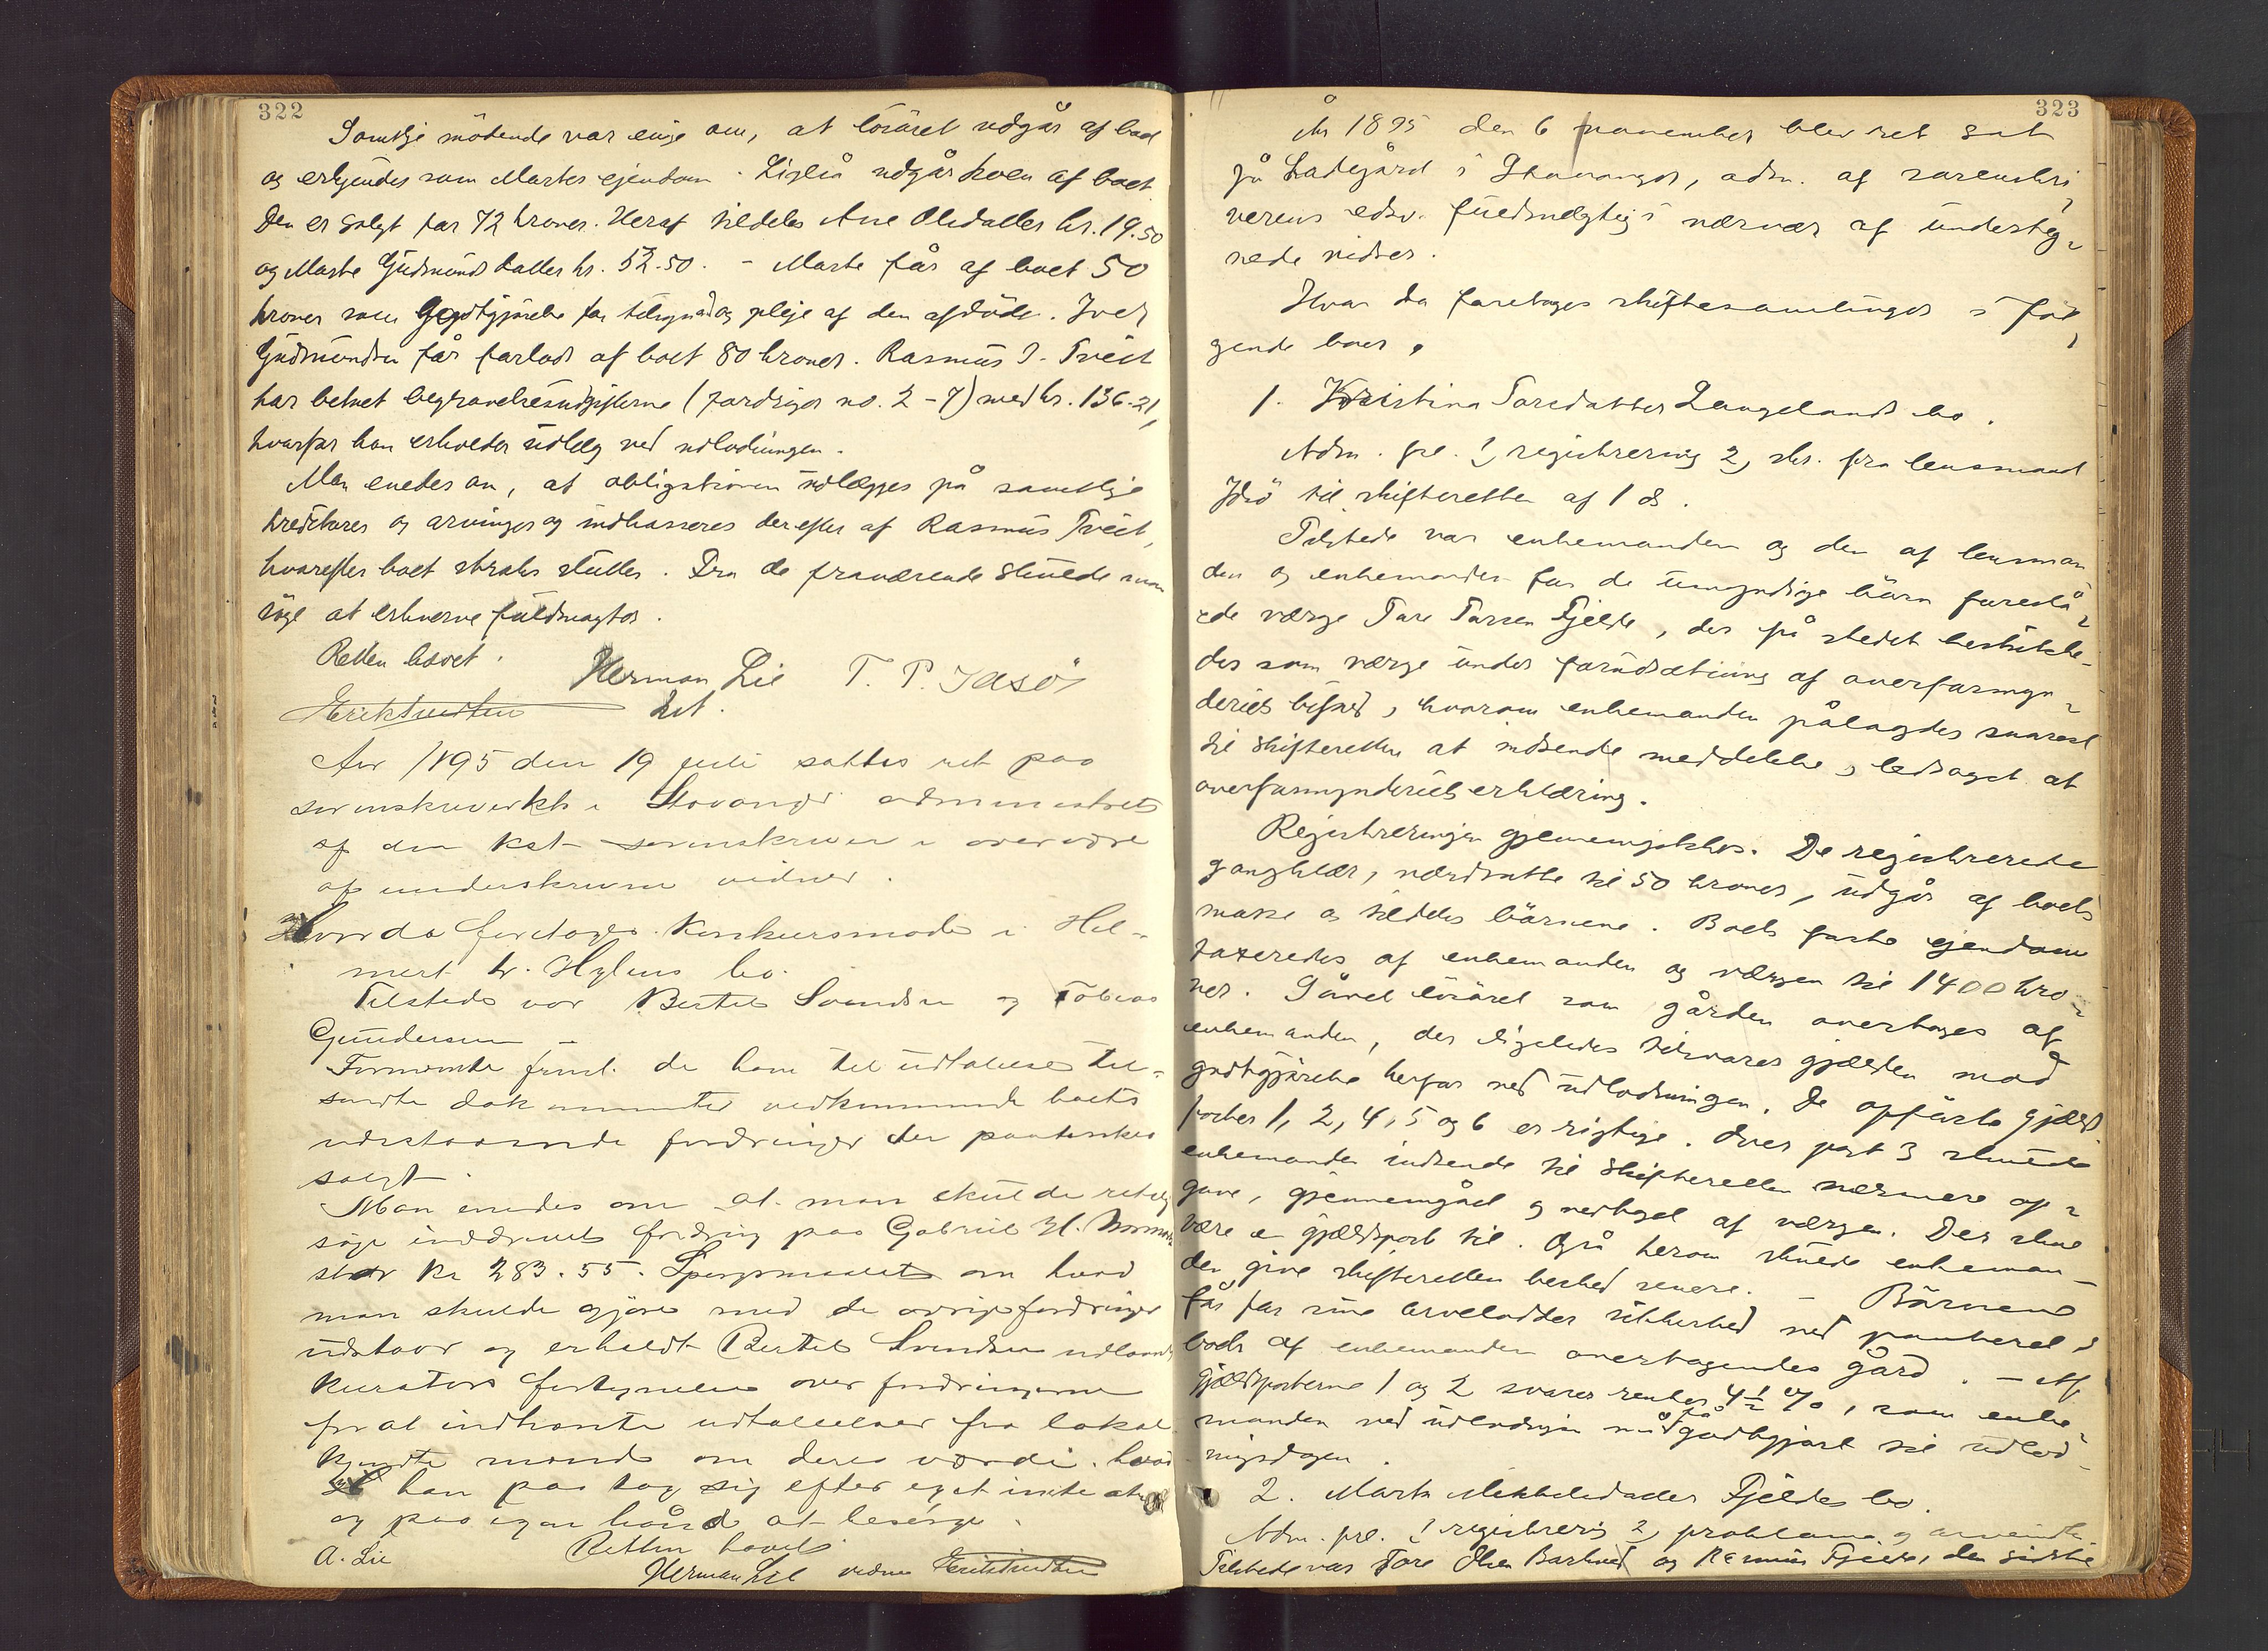 322
Samtlige mödende var enige om, at lösöret udgår af boet
og erkjendes som Martes ejendom. Ligeså udgår koen af boet.
Den er solgt for 72 kroner. Heraf tildeles Ane Olsdatter kr. 19.50
og Marte Gudmundsdatter kr. 52.50. - Marte får af boet 50
kroner som godtgjörelse for tilsyn og pleje af den afdöde. Iver
Gudmundsen får forlods af boet 80 kroner. Rasmus I. Tveit
har betalt begravelsesudgifterne (fordringer no. 2-7) med kr. 136.21,
hvorfor han erholder udlæg ved udlodningen.
Man enedes om, at obligationen udlægges på samtlige
kreditorer og arvinger og indkasseres derefter af Rasmus Tveit,
hvorefter boet straks sluttes. Fra de fraværende skulede man
söge at erhverve fuldmagter.
Retten hævet.
Herman Lie T. P. Idsö
Aar 1895 den 19 juli sattes ret paa
sorenskriverkt. i Stavanger administret
af den kst. sorenskriver i overvære
af underskrevne vidner.
Hvorda foretoges konkursmöde i Hel-
mert Hylens bo.
Tilstede var Bertel Svendsen og Tobias
Gundersen
Fornemte freml. de ham til udtalelse til-
sendte dokumenter vedkommende boets
udestaaende fordringer der paatænkes
solgt
Man enedes om at man skulde
söge inddrevet fordring paa Gabriel H.
stor kr 283.55. Spörgsmaalet om hvad
man skulde gjöre med de övrige fordringer
udstaar og erholdt Bertel Svendsen
kurators fortegnelse over fordringerne
for at indhente udtalelser fra lokal
kjendte mænd om deres værdi. hvad
han paa tog sig efter eget
og paa egen haand at besörge.
Retten hævet
A. Lie
Herman Lie vidner
323
År 1895 den 6 november blev ret sat
på Ladegård i Stavanger, adm. af sorenskri
verens edsv. fuldmægtig i nærvær af underteg-
nede vidner.
Hvor da foretoges skiftesamlinger i föl
gende boer,
1. Kristina Toredatter Langelands bo.
Adm. frl. 1, registrering 2, skr. fra lensmand
Idsö til skifteretten af 1 ds.
Tilstede var enkemanden og den af lensman
den og enkemanden for de umyndige börn foreslå-
ede værge Tore Torsen Fjelde, der på stedet beskikke-
des som værge under forudsætning af overformyn-
deriets bifald, hvorom enkemanden pålagdes snarest
til skifteretten at indsende meddelelse, ledsaget at
overformynderiets erklæring.
Registreringen gjennemgikkes. De registrerede
gangklær, værdsatte til 50 kroner, udgår af boets
masse og tildeles börnene. Boets faste ejendom
taxeredes af enkemanden og værgen til 1400 kro-
ner. Såvel lösöret som gården overtages af
enkemanden, der ligeledes tilsvarer gjælden mod
godtgjörelse herfor ved udlodningen. De opförte gjælds
poster 1, 2, 4, 5 og 6 er rigtige. Over post 3 skulede
enkemanden indsende til skifteretten nærmere op-
gave, gjennemgået og vedtaget af værgen. Der skue
være en gjældspost til. Også herom skulede enkeman-
den give skifteretten besked senere. - Börnene
får for sine arvelodder sikkerhed ved panteret i
boets af enkemanden overtagendes gård. - Af
gjældsposterne 1 og 2 svares renter 4 1/2 %, som enke-
manden ved udlodningen må få godtgjort til udlod-
ningsdagen.
2. Marta Mikkelsdatter Fjeldes bo.
Adm. frl. 1 registrering 2, proklama og
Tilstede var Tore Olsen Barkved og Rasmus Fjelde, den sidste